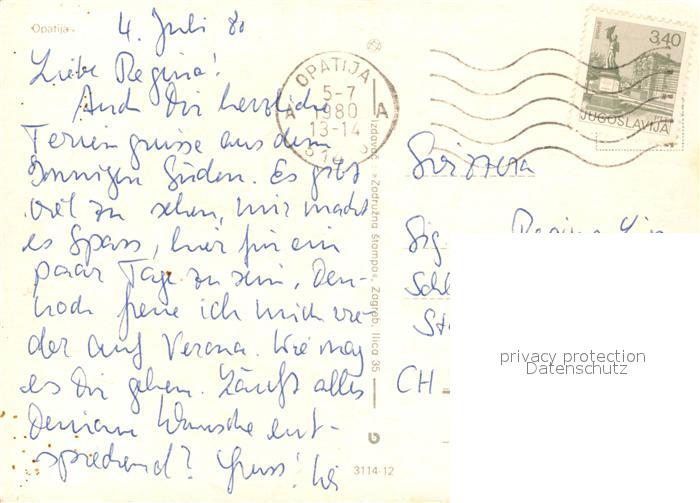 Opatija
4. Juli 80
Liebe Regina!
Auch Dir herzliche
Feriengrüsse aus dem
sonnigen Süden. Es gibt
viel zu sehen, mir macht
es Spass, hier für ein
paar Tage zu sein. Den-
noch freue ich mich wie-
der auf Verona. Wie mag
es Dir gehen. Läuft alles
Deinem Wunsche ent-
sprechend? Gruss!
3114-12
Izdavač »Zadružna štampa«, Zagreb, Ilica 35
OPATIJA
5-7
1980
A A
13-14
3,40
JUGOSLAVIJA
Svizzera
Sig. Regina
CH
privacy protection
Datenschutz